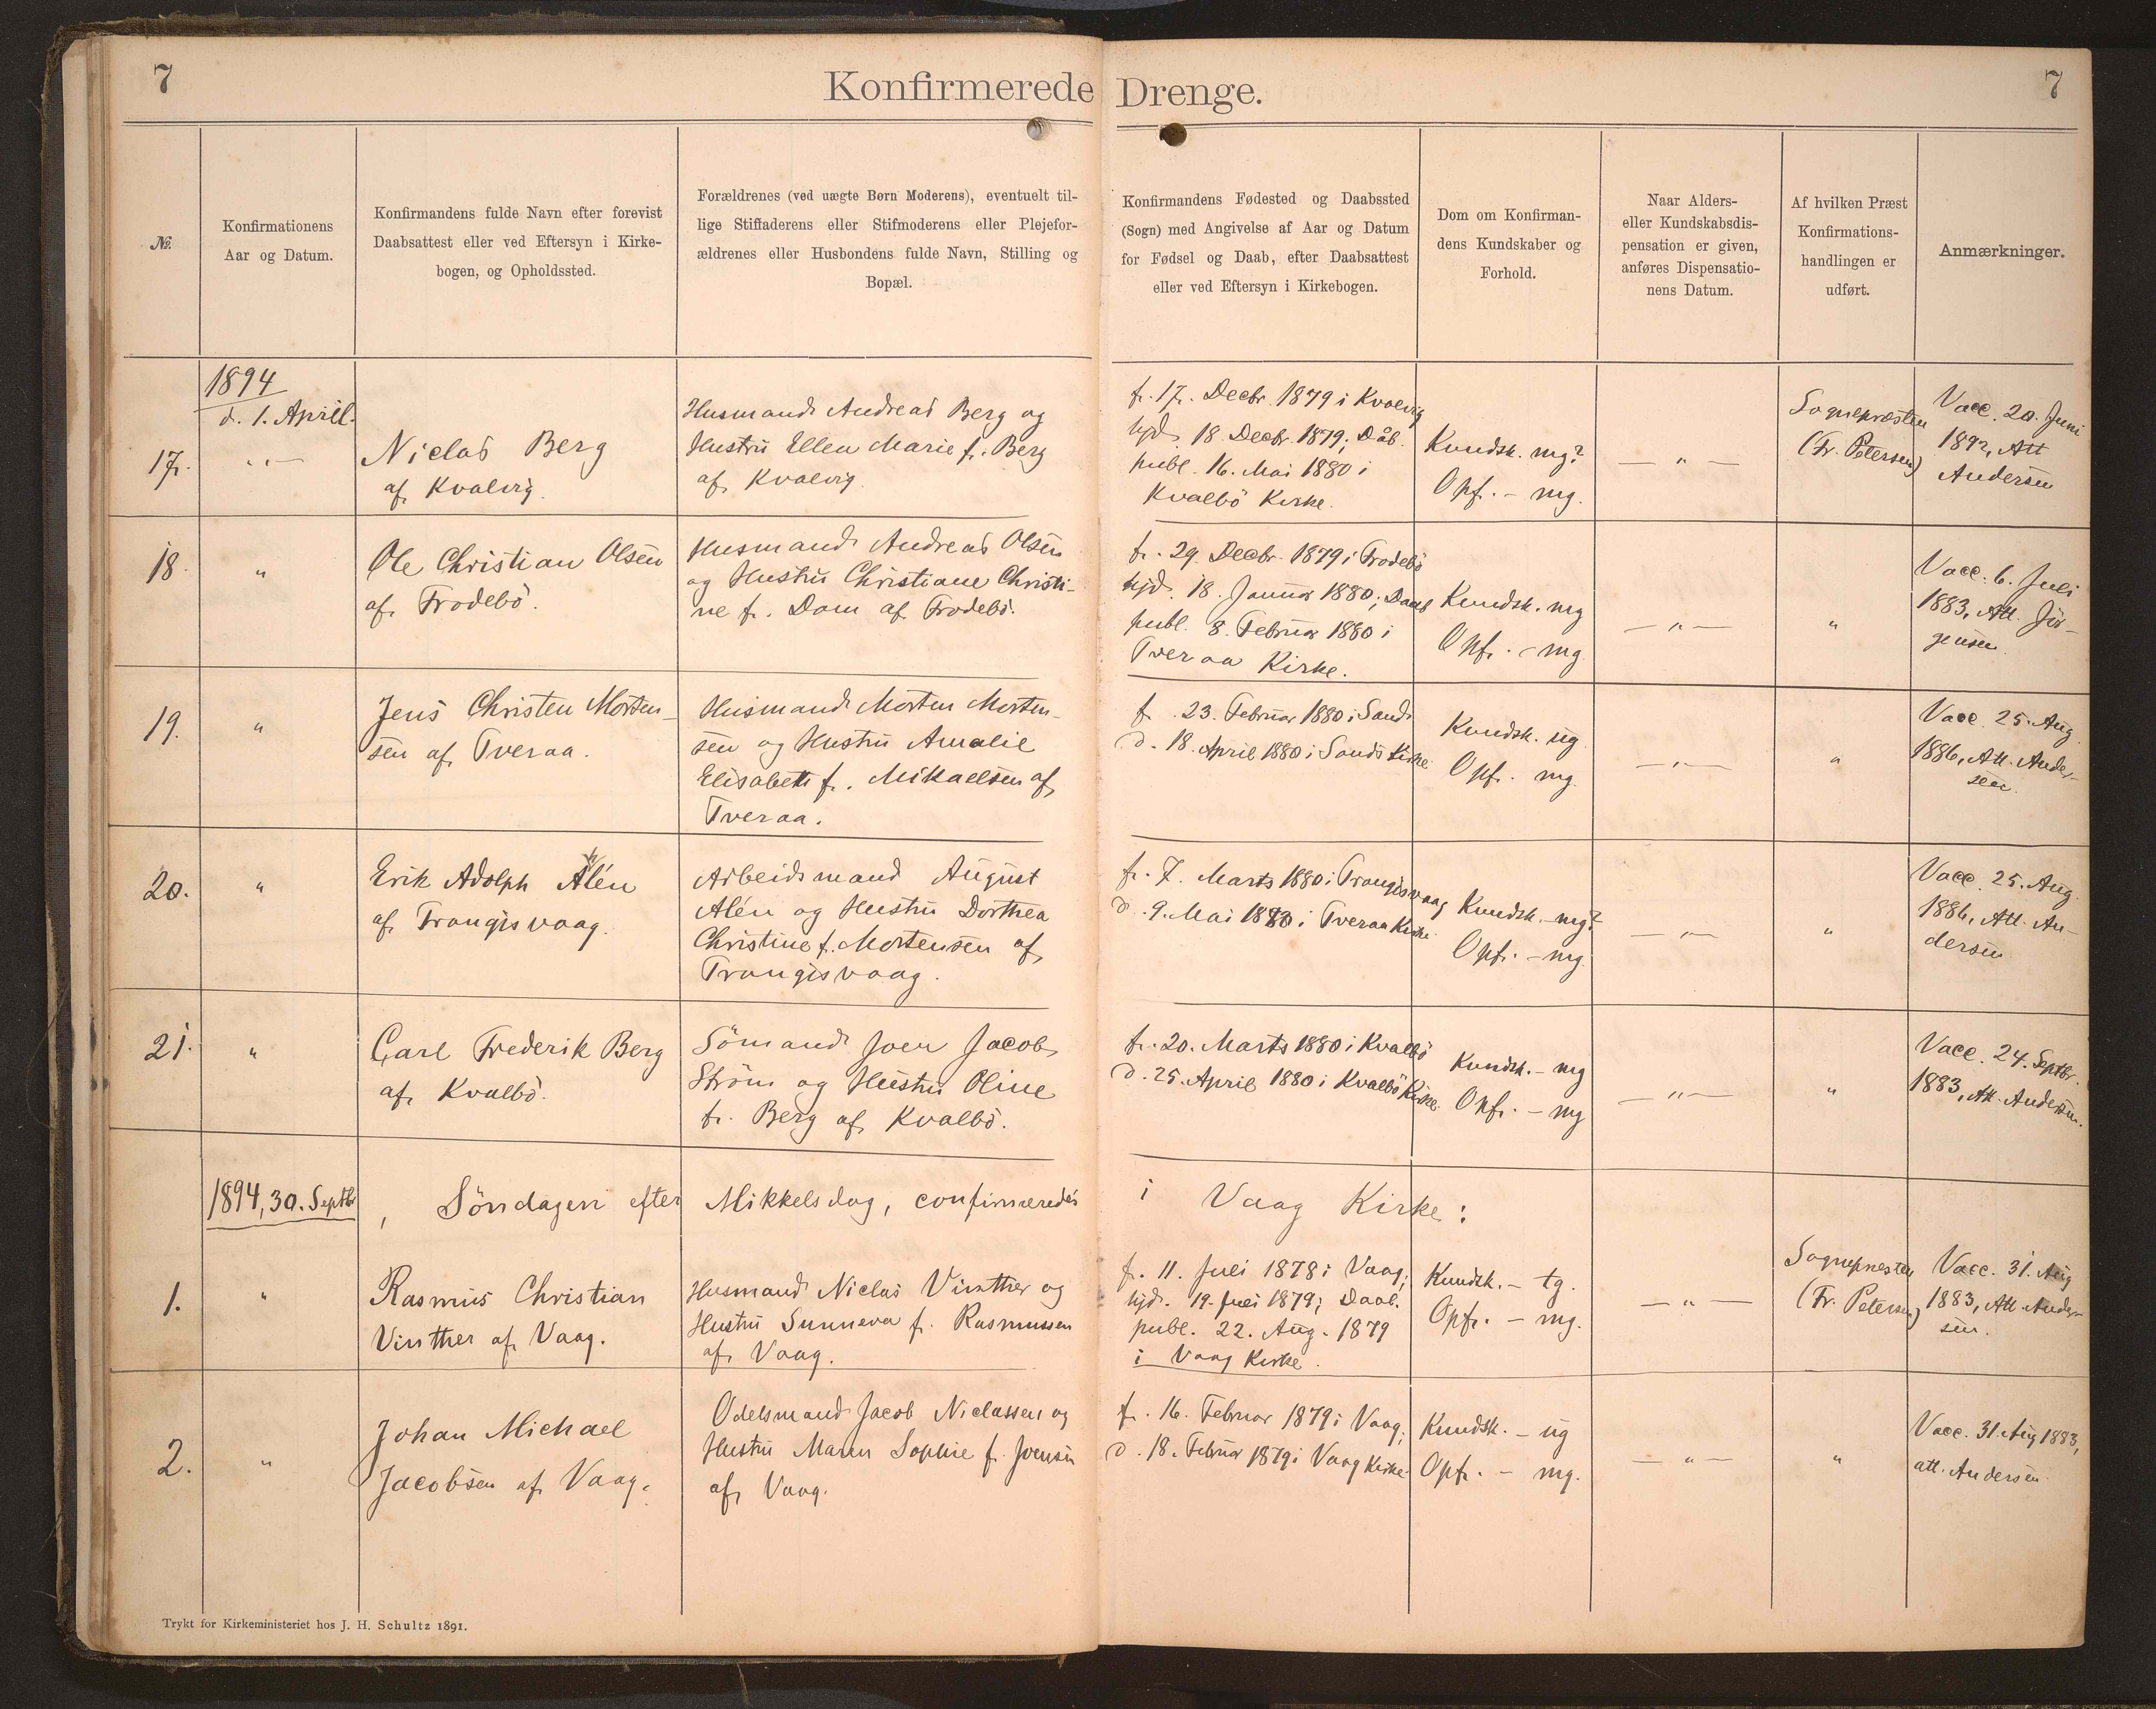 7
Konfirmerede Drenge.
7
№.
Konfirmationens
Aar og Datum.
Konfirmandens fulde Navn efter forevist
Daabsattest eller ved Eftersyn i Kirke-
bogen, og Opholdssted.
Forældrenes (ved uægte Børn Moderens), eventuelt til-
lige Stiffaderens eller Stifmoderens eller Plejefor-
ældrenes eller Husbondens fulde Navn, Stilling og
Bopæl.
Konfirmandens Fødested og Daabssted
(Sogn) med Angivelse af Aar og Datum
for Fødsel og Daab, efter Daabsattest
eller ved Eftersyn i Kirkebogen.
Dom om Konfirman-
dens Kundskaber og
Forhold.
Naar Alders-
eller Kundskabsdis-
pensation er given,
anføres Dispensatio-
nens Datum.
Af hvilken Præst
Konfirmations-
handlingen er
udført.
Anmærkninger.
1894
d. 1. April.
17.
" —
Niclas Berg
af Kvalvig.
Husmand Andreas Berg og
Hustru Ellen Marie f. Berg
af Kvalvig
f. 17. Decbr. 1879 i Kvalvig
hjd. 18. Decbr. 1879; Dåb.
publ. 16. Mai 1880 i
Kvalbö Kirke.
Kundsk. mg?
Opf. – mg.
— " —
Sognepræsten
(Fr. Petersen)
Vacc. 20. Juni
1892, Att
Andersen
18.
"
Ole Christian Olsen
af Frodebö.
Husmand Andreas Olsen
og Hustru Christiane Christi-
ne f. Dam af Frodebö.
f. 29. Decbr. 1879 i Frodebö
hjd. 18. Januar 1880; Daab
publ. 8. Februar 1880 i
Tveraa Kirke.
Kundsk. mg
Opf. – mg
— " —
"
Vacc. 6. Juli
1883, Att. Jör-
gensen.
19.
"
Jens Christen Morten-
sen af Tveraa.
Husmand Morten Morten-
sen og Hustru Amalie
Elisabeth f. Mikaelsen af
Tveraa.
f. 23. Februar 1880 i Sand
d. 18. April 1880 i Sands Kirke
Kundsk. ug
Opf. mg
— " —
"
Vacc. 25. Aug.
1886, Att. Ander-
sen.
20.
"
Erik Adolph Alén
af Trangisvaag.
Arbeidsmand August
Alén og Hustru Dorthea
Christine f. Mortensen af
Trangisvaag.
f. 7. Marts 1880 i Trangisvaag
d. 9. Mai 1880 i Tveraa Kirke.
Kundsk. – mg?
Opf. – mg.
— " —
"
Vacc. 25. Aug.
1886, Att. An-
dersen
21.
"
Carl Frederik Berg
af Kvalbö.
Sömand Joen Jacob
Ström og Hustru Oline
f. Berg af Kvalbö.
f. 20. Marts 1880 i Kvalbö
d. 25. April 1880 i Kvalbö Kirke.
Kundsk. – mg
Opf. – mg
— " —
"
Vacc. 24. Septbr.
1883, Att. Andersen.
1894, 30. Septbr, Söndagen efter Mikkelsdag, confirmeredes i Vaag Kirke:
1.
"
Rasmus Christian
Vinther af Vaag.
Husmand Niclas Vinther og
Hustru Sunneva f. Rasmussen
af Vaag.
f. 11. Juli 1878 i Vaag;
hjd. 19. Juli 1879; Daab.
publ. 22. Aug. 1879
i Vaag Kirke.
Kundsk. – tg.
Opf. – mg.
— " —
Sognepræsten
(Fr. Petersen)
Vacc. 31. Aug
1883, Att. Ander-
sen.
2.
"
Johan Michael
Jacobsen af Vaag.
Odelsmand Jacob Niclassen og
Hustru Maren Sophie f. Joensen
af Vaag.
f. 16. Februar 1879 i Vaag;
d. 18. Februar 1879 i Vaag Kirke.
Kundsk. – ug
Opf. – mg.
— " —
"
Vacc. 31. Aug 1883,
att. Andersen.
Trykt for Kirkeministeriet hos J. H. Schultz 1891.